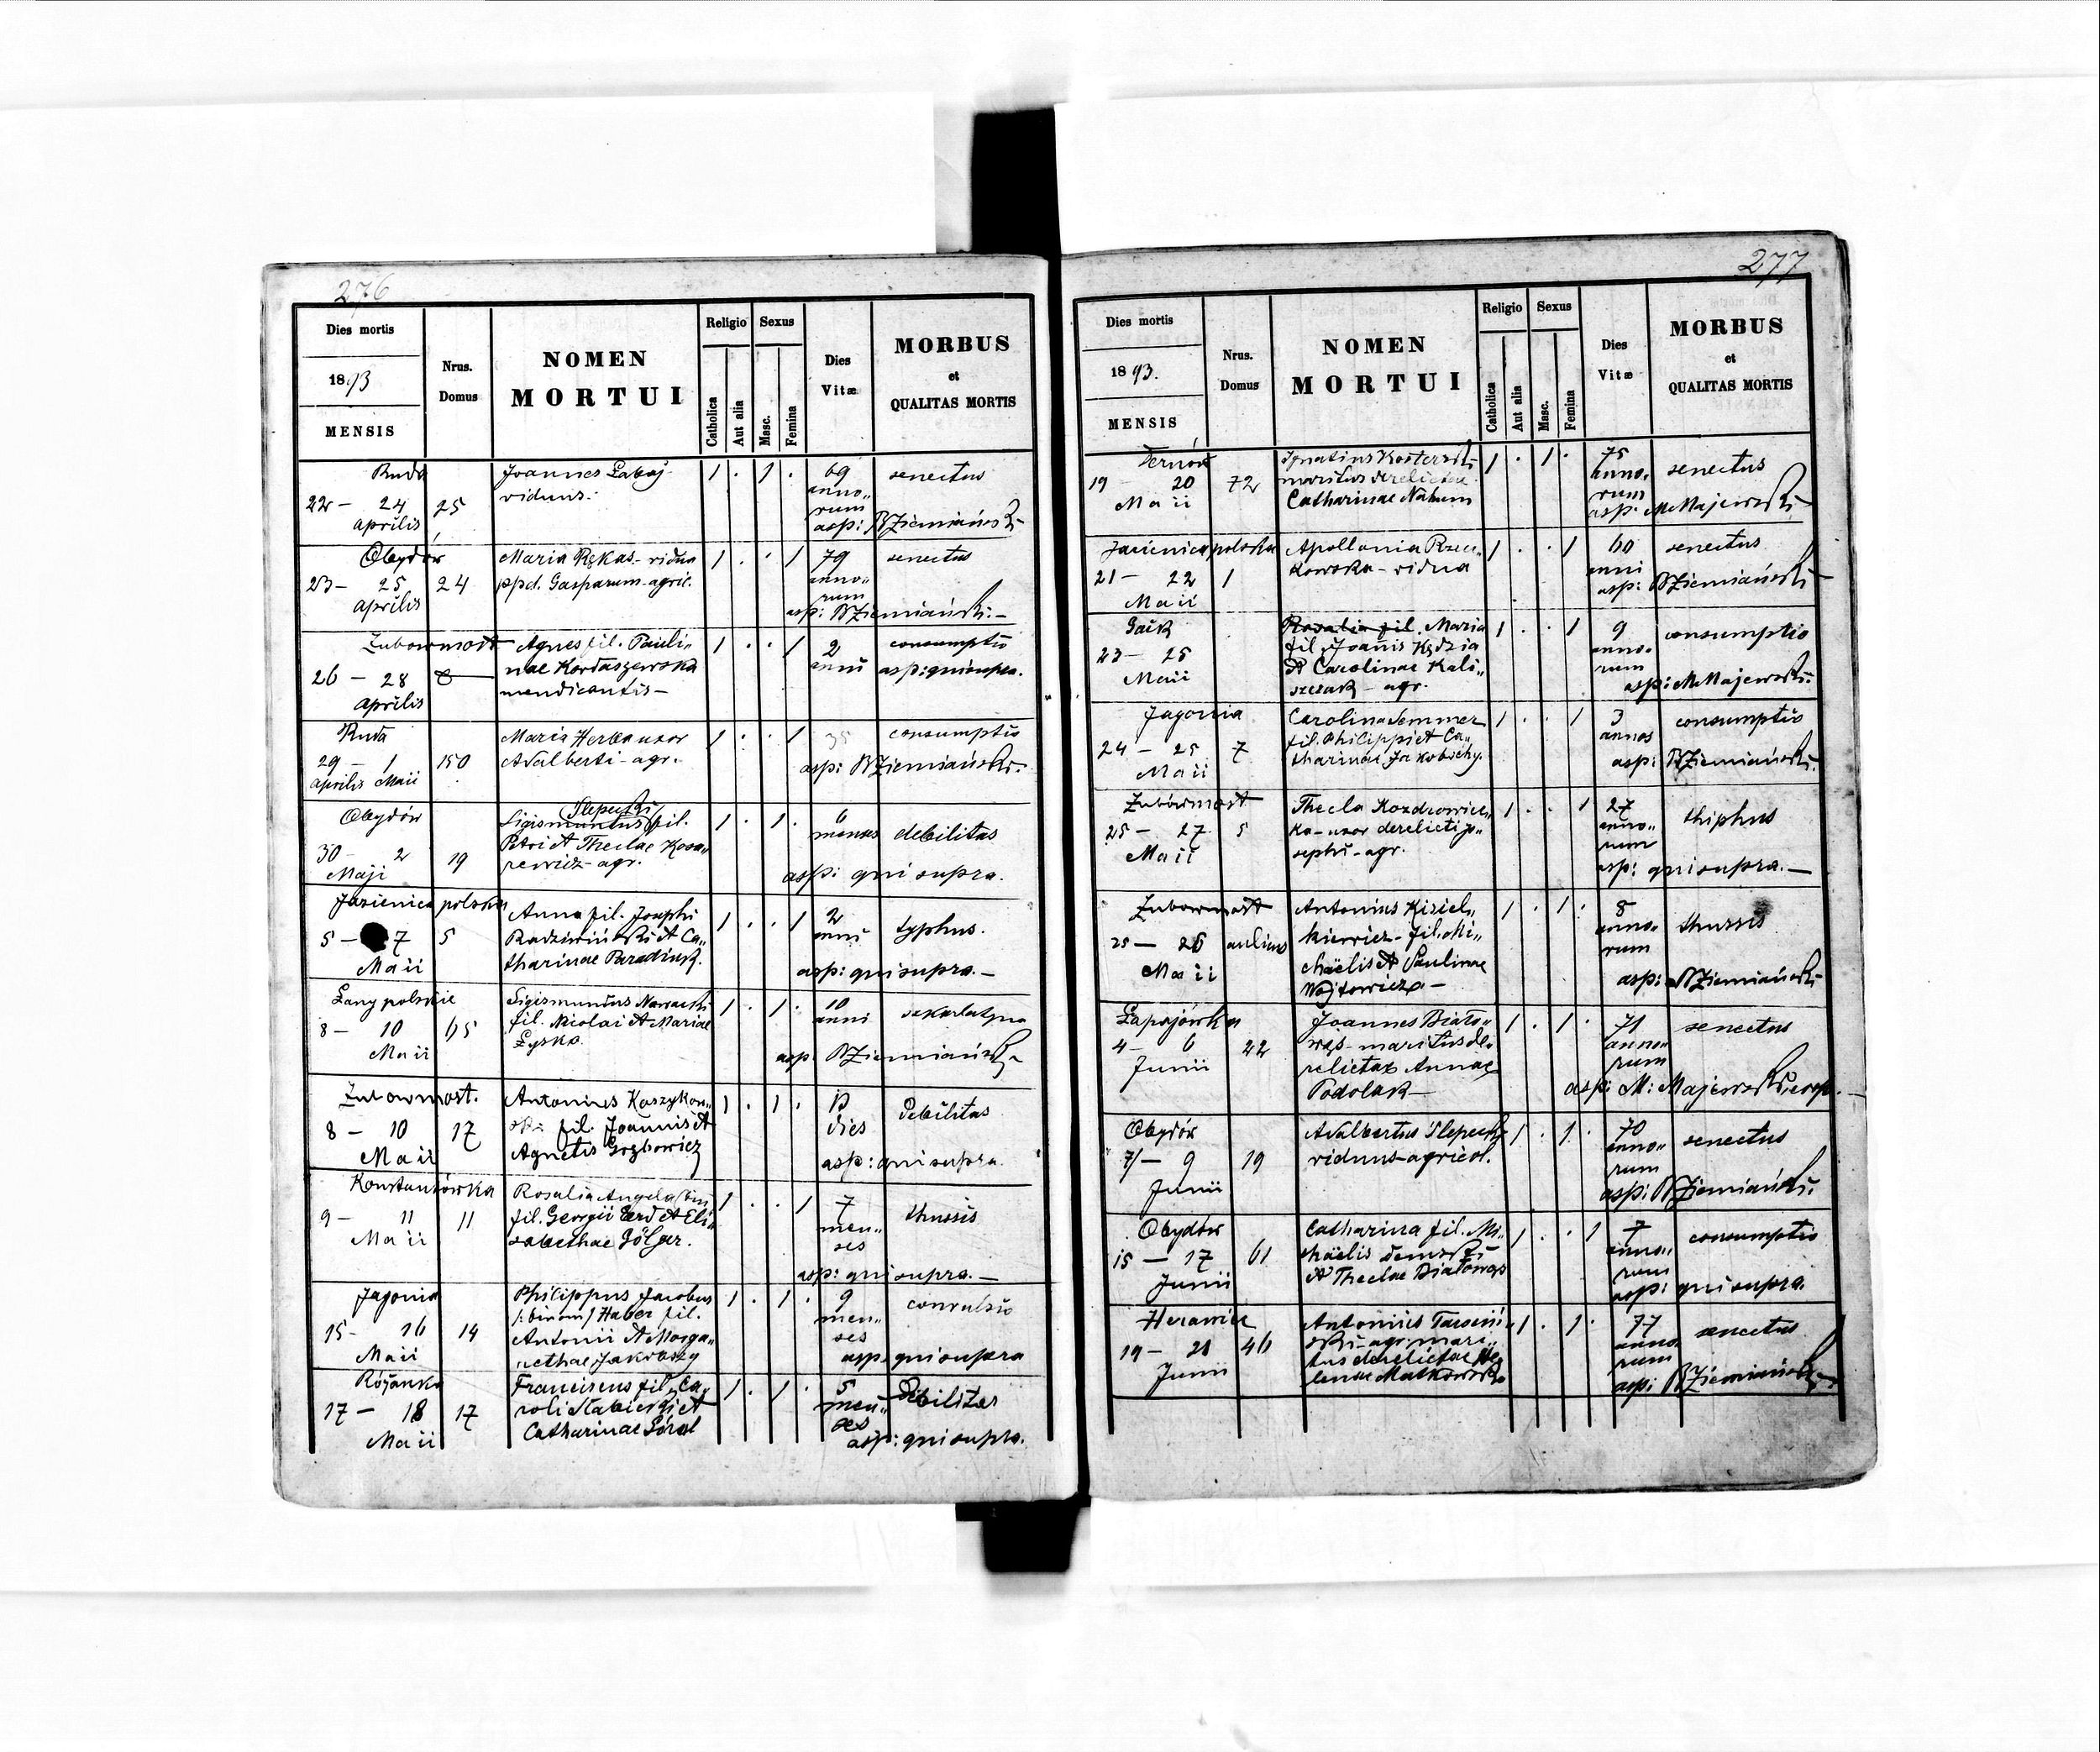 276
Dies mortis
1893
MENSIS
Nrus.
Domus
NOMEN
MORTUI
Religio
Catholica
Aut alia
Sexus
Masc.
Femina
Dies
Vitæ
MORBUS
et
QUALITAS MORTIS
Ruda
22 – 24
Aprilis
25
Joannes
viduus.
1 . 1 .
69
anno„
rum
senectus
asp: Ziemiański
Obydów
23 – 25
Aprilis
24
Maria Rękas – vidua
ppd. Gasparum – agric.
1 . . 1
79
anno„
rum
senectus
asp: Ziemiański. –
Zubowmost
26 – 28
Aprilis
8
Agnes fil. Pauli„
nae Kordaszewska
mendicantis –
1 . . 1
2
anni
consumptio
asp: qui supra.
Ruda
29 – 1
Aprilis Maii
150
Maria Herba uxor
Adalberti – agr.
1 . . 1
35
consumptio
asp: Ziemiański.
Obydów
30 – 2
Maji
19
Slepecki
Sigismuntus fil.
Petri et Theclae Kosa„
rewicz – agr.
1 . 1 .
6
menses
debilitas
asp: qui supra.
Jazienica polska
5 – 7
Maii
5
Anna fil. Josephi
Radziwiński et Ca„
tharinae
1 . . 1
2
anni
typhus.
asp: qui supra. –
Lany polskie
8 – 10
Maii
65
Sigismundus Nawacki
fil. Nicolai et Mariae
Łysko
1 . 1 .
10
anni
asp. Ziemiański
Zubowmost.
8 – 10
Maii
17
Antonius Koszykow„
ski fil. Joannis et
Agnetis
1 . 1 .
dies
debilitas
asp: qui supra.
Konstantówka
9 – 11
Maii
11
Rosalia Angela /bin
fil. Georgii et Eli„
sabethae Gölger.
1 . . 1
7
men„
ses
thussis
asp: qui supra. –
Jagonia
15 – 16
Maii
14
Philippus Jacobus
/:binom/ Haber fil.
Antonii et Marga„
rethae
1 . 1 .
9
men„
ses
convulsio
asp. qui supra
Różanka
17 – 18
Maii
17
Franciscus fil. Ca„
roli et
Catharinae Góral
1 . 1 .
5
men„
ses
Debilitas
asp: qui supra.
277
Dies mortis
1893.
MENSIS
Nrus.
Domus
NOMEN
MORTUI
Religio
Catholica
Aut alia
Sexus
Masc.
Femina
Dies
Vitæ
MORBUS
et
QUALITAS MORTIS
19 – 20
Maii
72
Ignatius
maritus derelictae
Catharinae Nahum
1 . 1 .
75
anno„
rum
senectus
asp. M Majewski
Jazienica polska
21 – 22
Maii
1
Apollonia Rzecz„
kowska – vidua
1 . . 1
60
anni
senectus
asp: Ziemiański
Gaik
23 – 25
Maii
Rosalia fil. Maria
fil. Joanis Kędzia
et Carolinae Kali„
szczak – agr.
1 . . 1
9
anno„
rum
consumptio
asp: M Majewski.
Jagonia
24 – 25
Maii
7
Carolina Semmer
fil. Philippi et Ca„
tharinae
1 . . 1
3
annos
consumptio
asp: Ziemiański.
Zubowmost
25 – 27
Maii
5
Thecla Kozdrowic„
ka – uxor derelicti Jo„
sephi – agr.
1 . . 1
27
anno„
rum
thiphus
asp: qui supra. –
Zubowmost
25 – 26
Maii
Antonius Kisiel„
kiewicz – fil. Mi„
chäelis et Paulinae
Wojtowicz –
1 . 1 .
8
anno„
rum
thussis
asp: Ziemiański
Łapajówka
4 – 6
Junii
22
Joannes Biało„
wąs – maritus de„
relictae Annae
Podolak –
1 . 1 .
71
anno„
rum
senectus
asp: M: Majewski
Obydów
7 – 9
Junii
19
Adalbertus Slepecki
viduus – agricol.
1 . 1 .
70
anno„
rum
senectus
asp: Ziemiański.
Obydów
15 – 17
Junii
61
Catharina fil. Mi„
chäelis Demski
et Theclae Białowąs
1 . . 1
7
anno„
rum
consumptio
asp: qui supra.
19 – 21
Junii
46
Antonius
ski – agr. mari„
tus derelictae He„
lenae Malkowska
1 . 1 .
77
anno„
rum
senectus
asp: Ziemiański